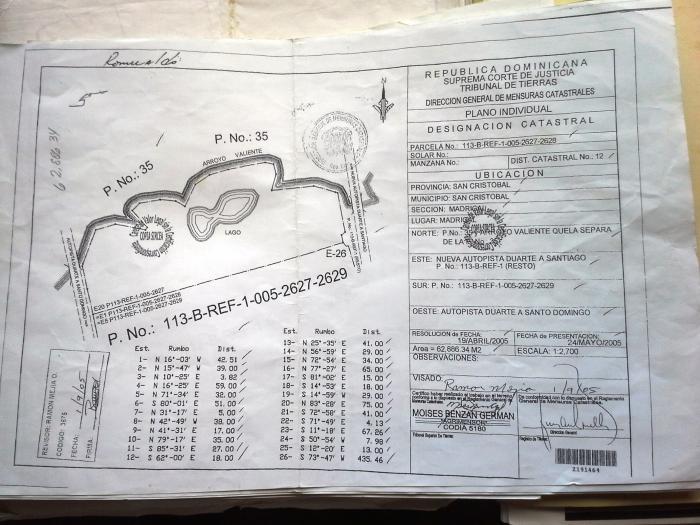 Romualdo
5
62,886.34
P. No.: 35
P. No.: 35
ARROYO VALIENTE
N
LAGO
COPIA SERCEA
E-26
E20 P113-REF-1-005-2627
=E1 P113-REF-1-005-2627-2628
=E5 P113-REF-1-005-2627-2628-2629
P. No.: 113-B-REF-1-005-2627-2629
Est. Rumbo Dist.
1- N 16°-03' W 42.51
2- N 15°-47' W 39.00
3- N 10°-25' E 3.82
4- N 16°-25' E 59.00
5- N 71°-34' E 32.00
6- S 80°-01' E 51.00
7- N 31°-17' E 5.00
8- N 42°-49' W 38.00
9- N 41°-31' E 17.00
10- N 79°-17' E 35.00
11- S 85°-31' E 27.00
12- S 62°-00' E 18.00
Est. Rumbo Dist.
13- N 25°-35' E 41.00
14- N 56°-59' E 29.00
15- N 72°-54' E 34.00
16- N 77°-27' E 65.00
17- S 81°-02' E 15.00
18- S 14°-53' E 18.00
19- S 14°-59' W 29.00
20- N 83°-28' E 75.00
21- S 72°-58' E 41.00
22- S 71°-49' E 4.13
23- S 11°-18' E 67.26
24- S 50°-54' W 7.98
25- S 12°-20' E 13.00
26- S 73°-47' W 435.46
REVISOR: RAMON MEJIA D.
CODIGO: 3875
FECHA: 1/9/05
FIRMA:
REPUBLICA DOMINICANA
SUPREMA CORTE DE JUSTICIA
TRIBUNAL DE TIERRAS
DIRECCION GENERAL DE MENSURAS CATASTRALES
PLANO INDIVIDUAL
DESIGNACION CATASTRAL
PARCELA No.: 113-B-REF-1-005-2627-2628
SOLAR No.:
MANZANA No.: DIST. CATASTRAL No.: 12
UBICACION
PROVINCIA: SAN CRISTOBAL
MUNICIPIO: SAN CRISTOBAL
SECCION: MADRIGAL
LUGAR: MADRIGAL
NORTE: P.No.: 35 ARROYO VALIENTE QUELA SEPARA
DE LA
ESTE: NUEVA AUTOPISTA DUARTE A SANTIAGO
P. No.: 113-B-REF-1 (RESTO)
SUR: P. No.: 113-B-REF-1-005-2627-2629
OESTE: AUTOPISTA DUARTE A SANTO DOMINGO
RESOLUCION de FECHA: FECHA de PRESENTACION:
19/ABRIL/2005 24/MAYO/2005
Area = 62,886.34 M2 ESCALA: 1:2,700
OBSERVACIONES:
VISADO: Ramon Mejia 1/9/05
MOISES BENZAN GERMAN
"AGRIMENSOR"
CODIA 5180
Tribunal Superior de Tierras
Director General
Registro de Titulos
2191464